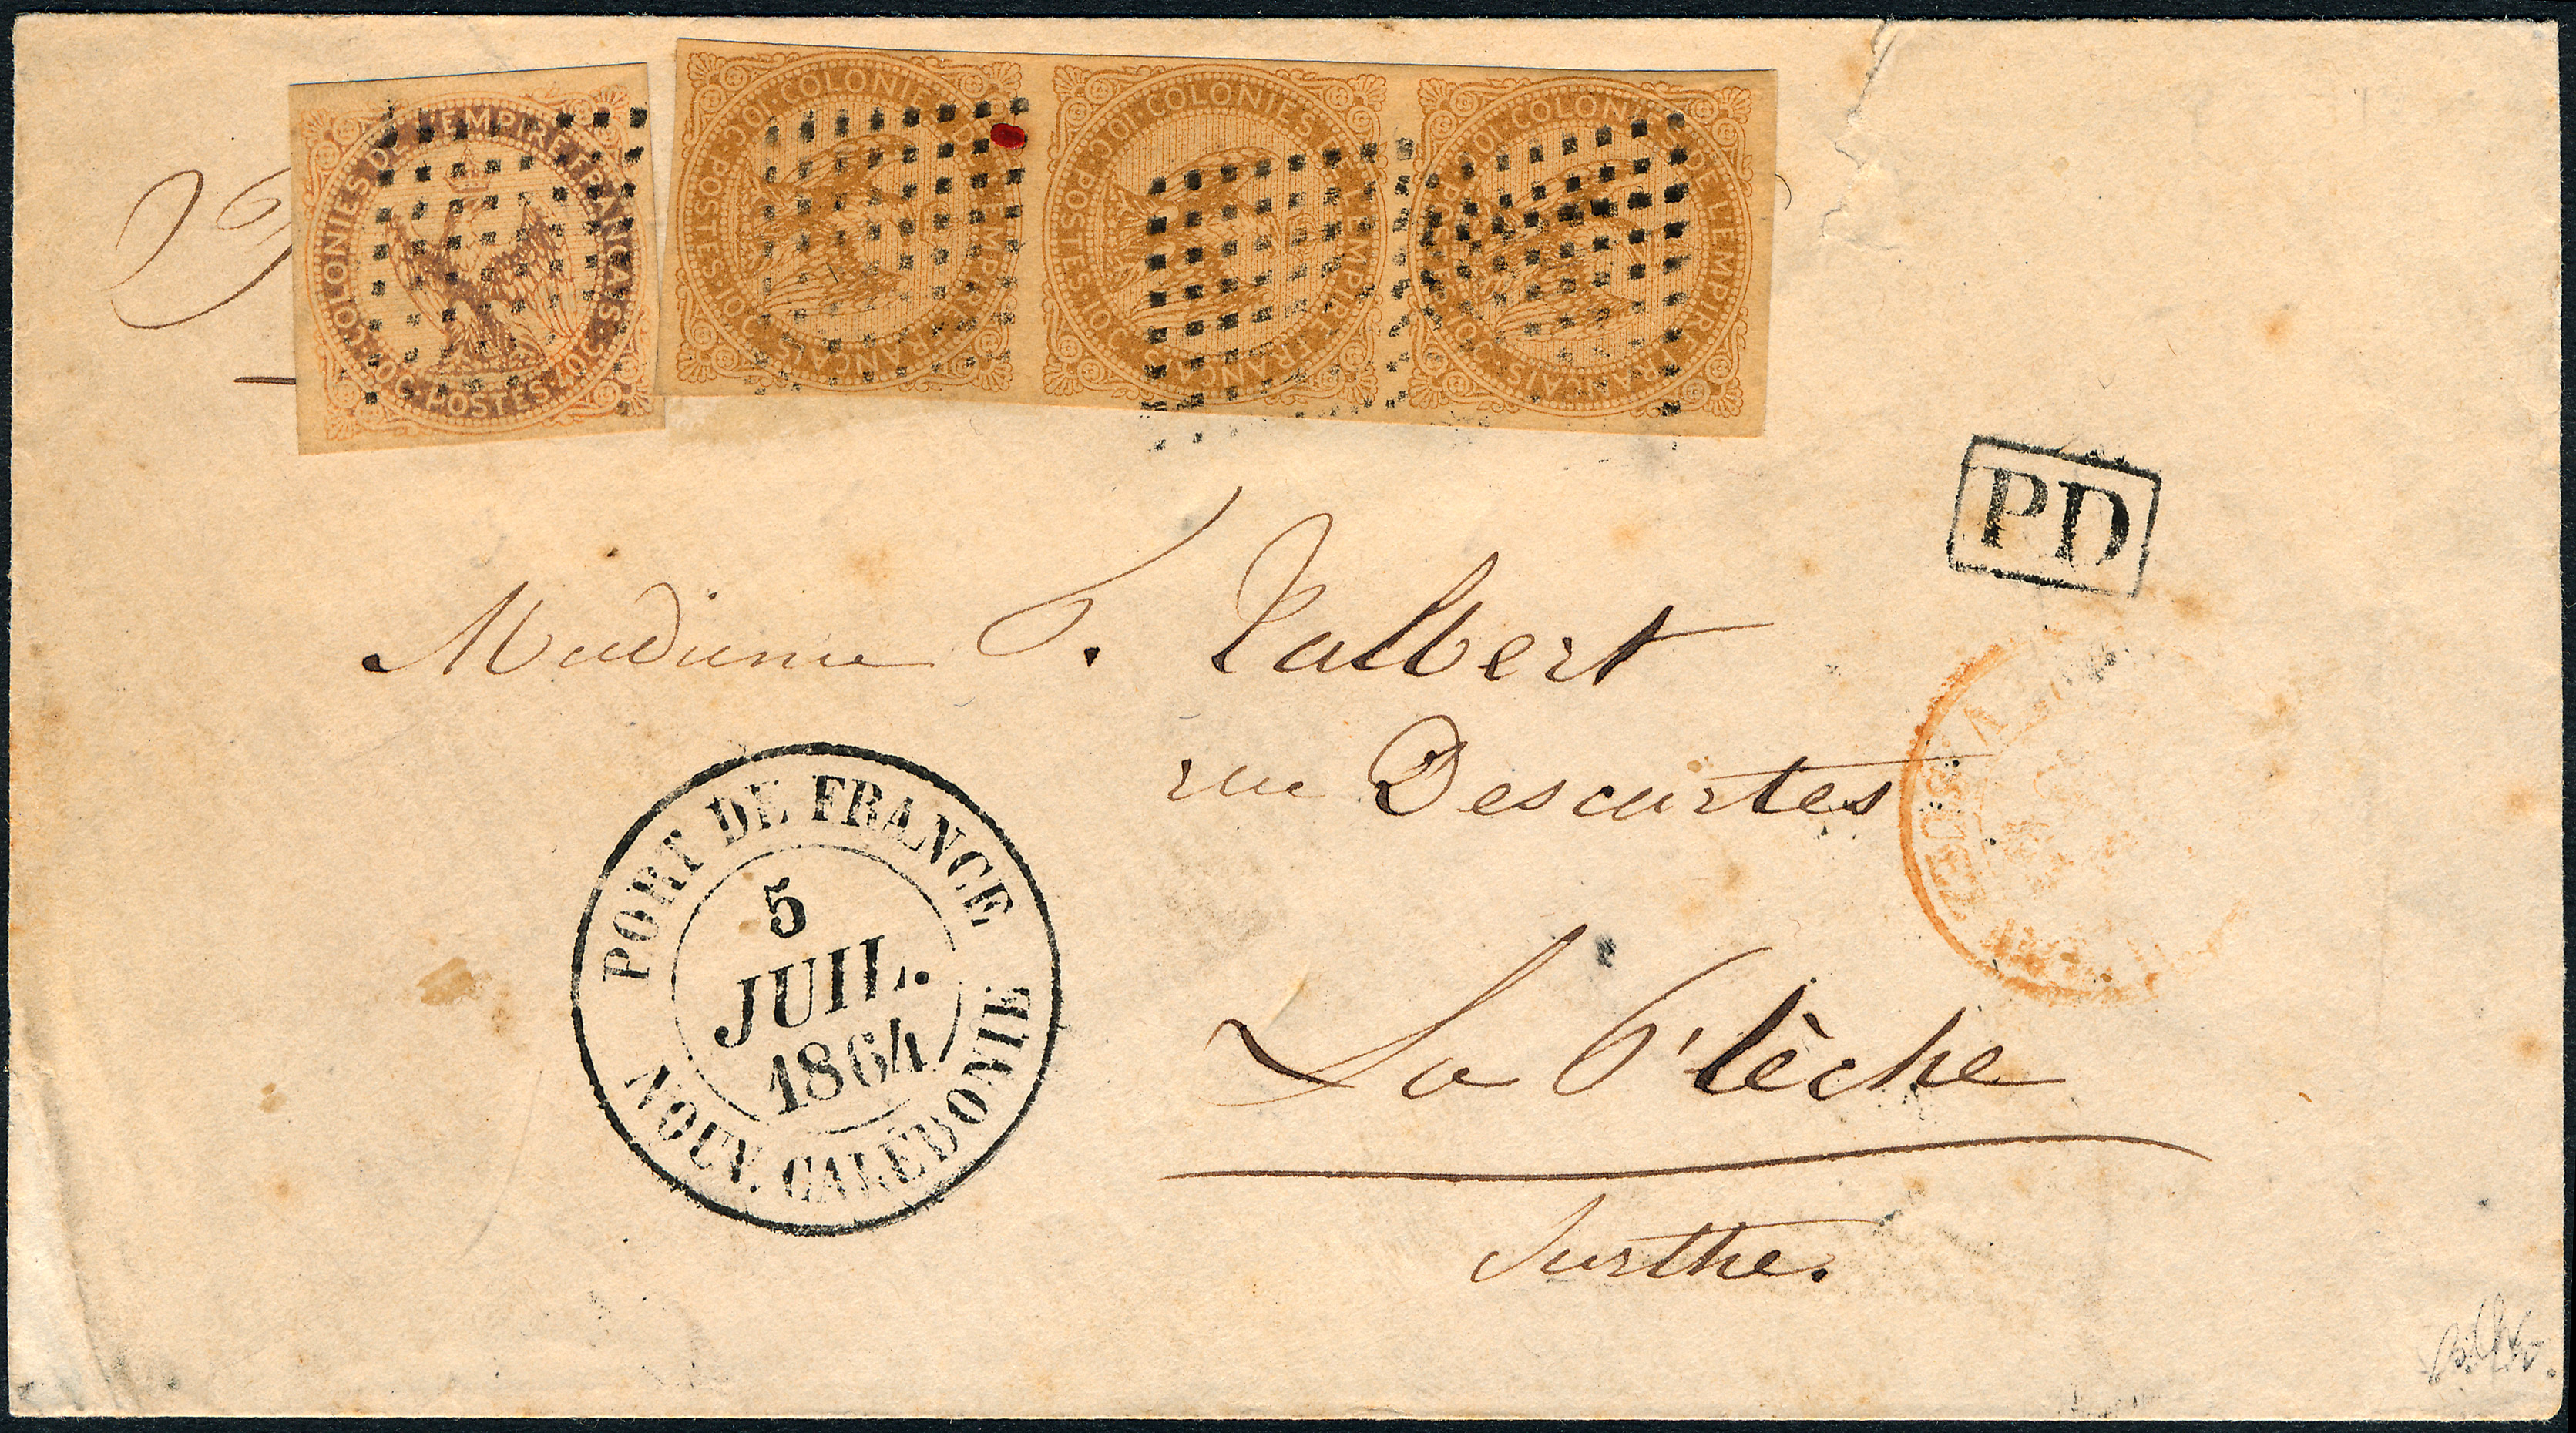 COLONIES DE L'EMPIRE FRANÇAIS
40C·POSTES·40C
COLONIES DE L'EMPIRE FRANÇAIS
10C·POSTES·10C
COLONIES DE L'EMPIRE FRANÇAIS
10C·POSTES·10C
COLONIES DE L'EMPIRE FRANÇAIS
10C·POSTES·10C
PD
Madame T. Talbert
rue Descartes
La Flèche
Sarthe.
PORT DE FRANCE
5
JUIL.
1864
NOUV. CALÉDONIE